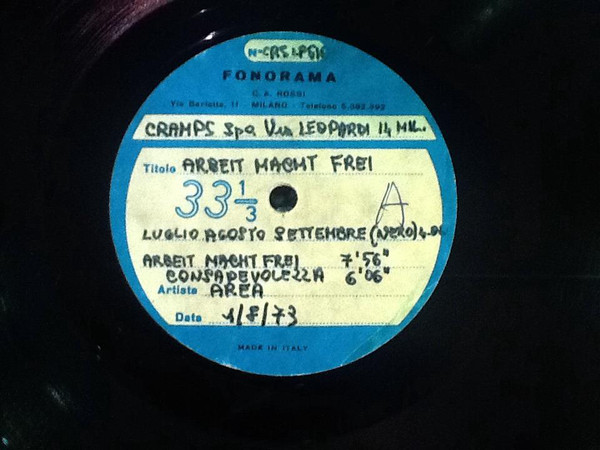 FONORAMA
C. A. ROSSI
MILANO - Telefono
CRAMPS Spa Via LEOPARDI 14 MIL.
Titolo ARBEIT MACHT FREI
33 1/3 A
LUGLIO, AGOSTO SETTEMBRE (NERO)
ARBEIT MACHT FREI 7'56"
CONSAPEVOLEZZA 6'06"
Artista AREA
Data 1/8/73
MADE IN ITALY